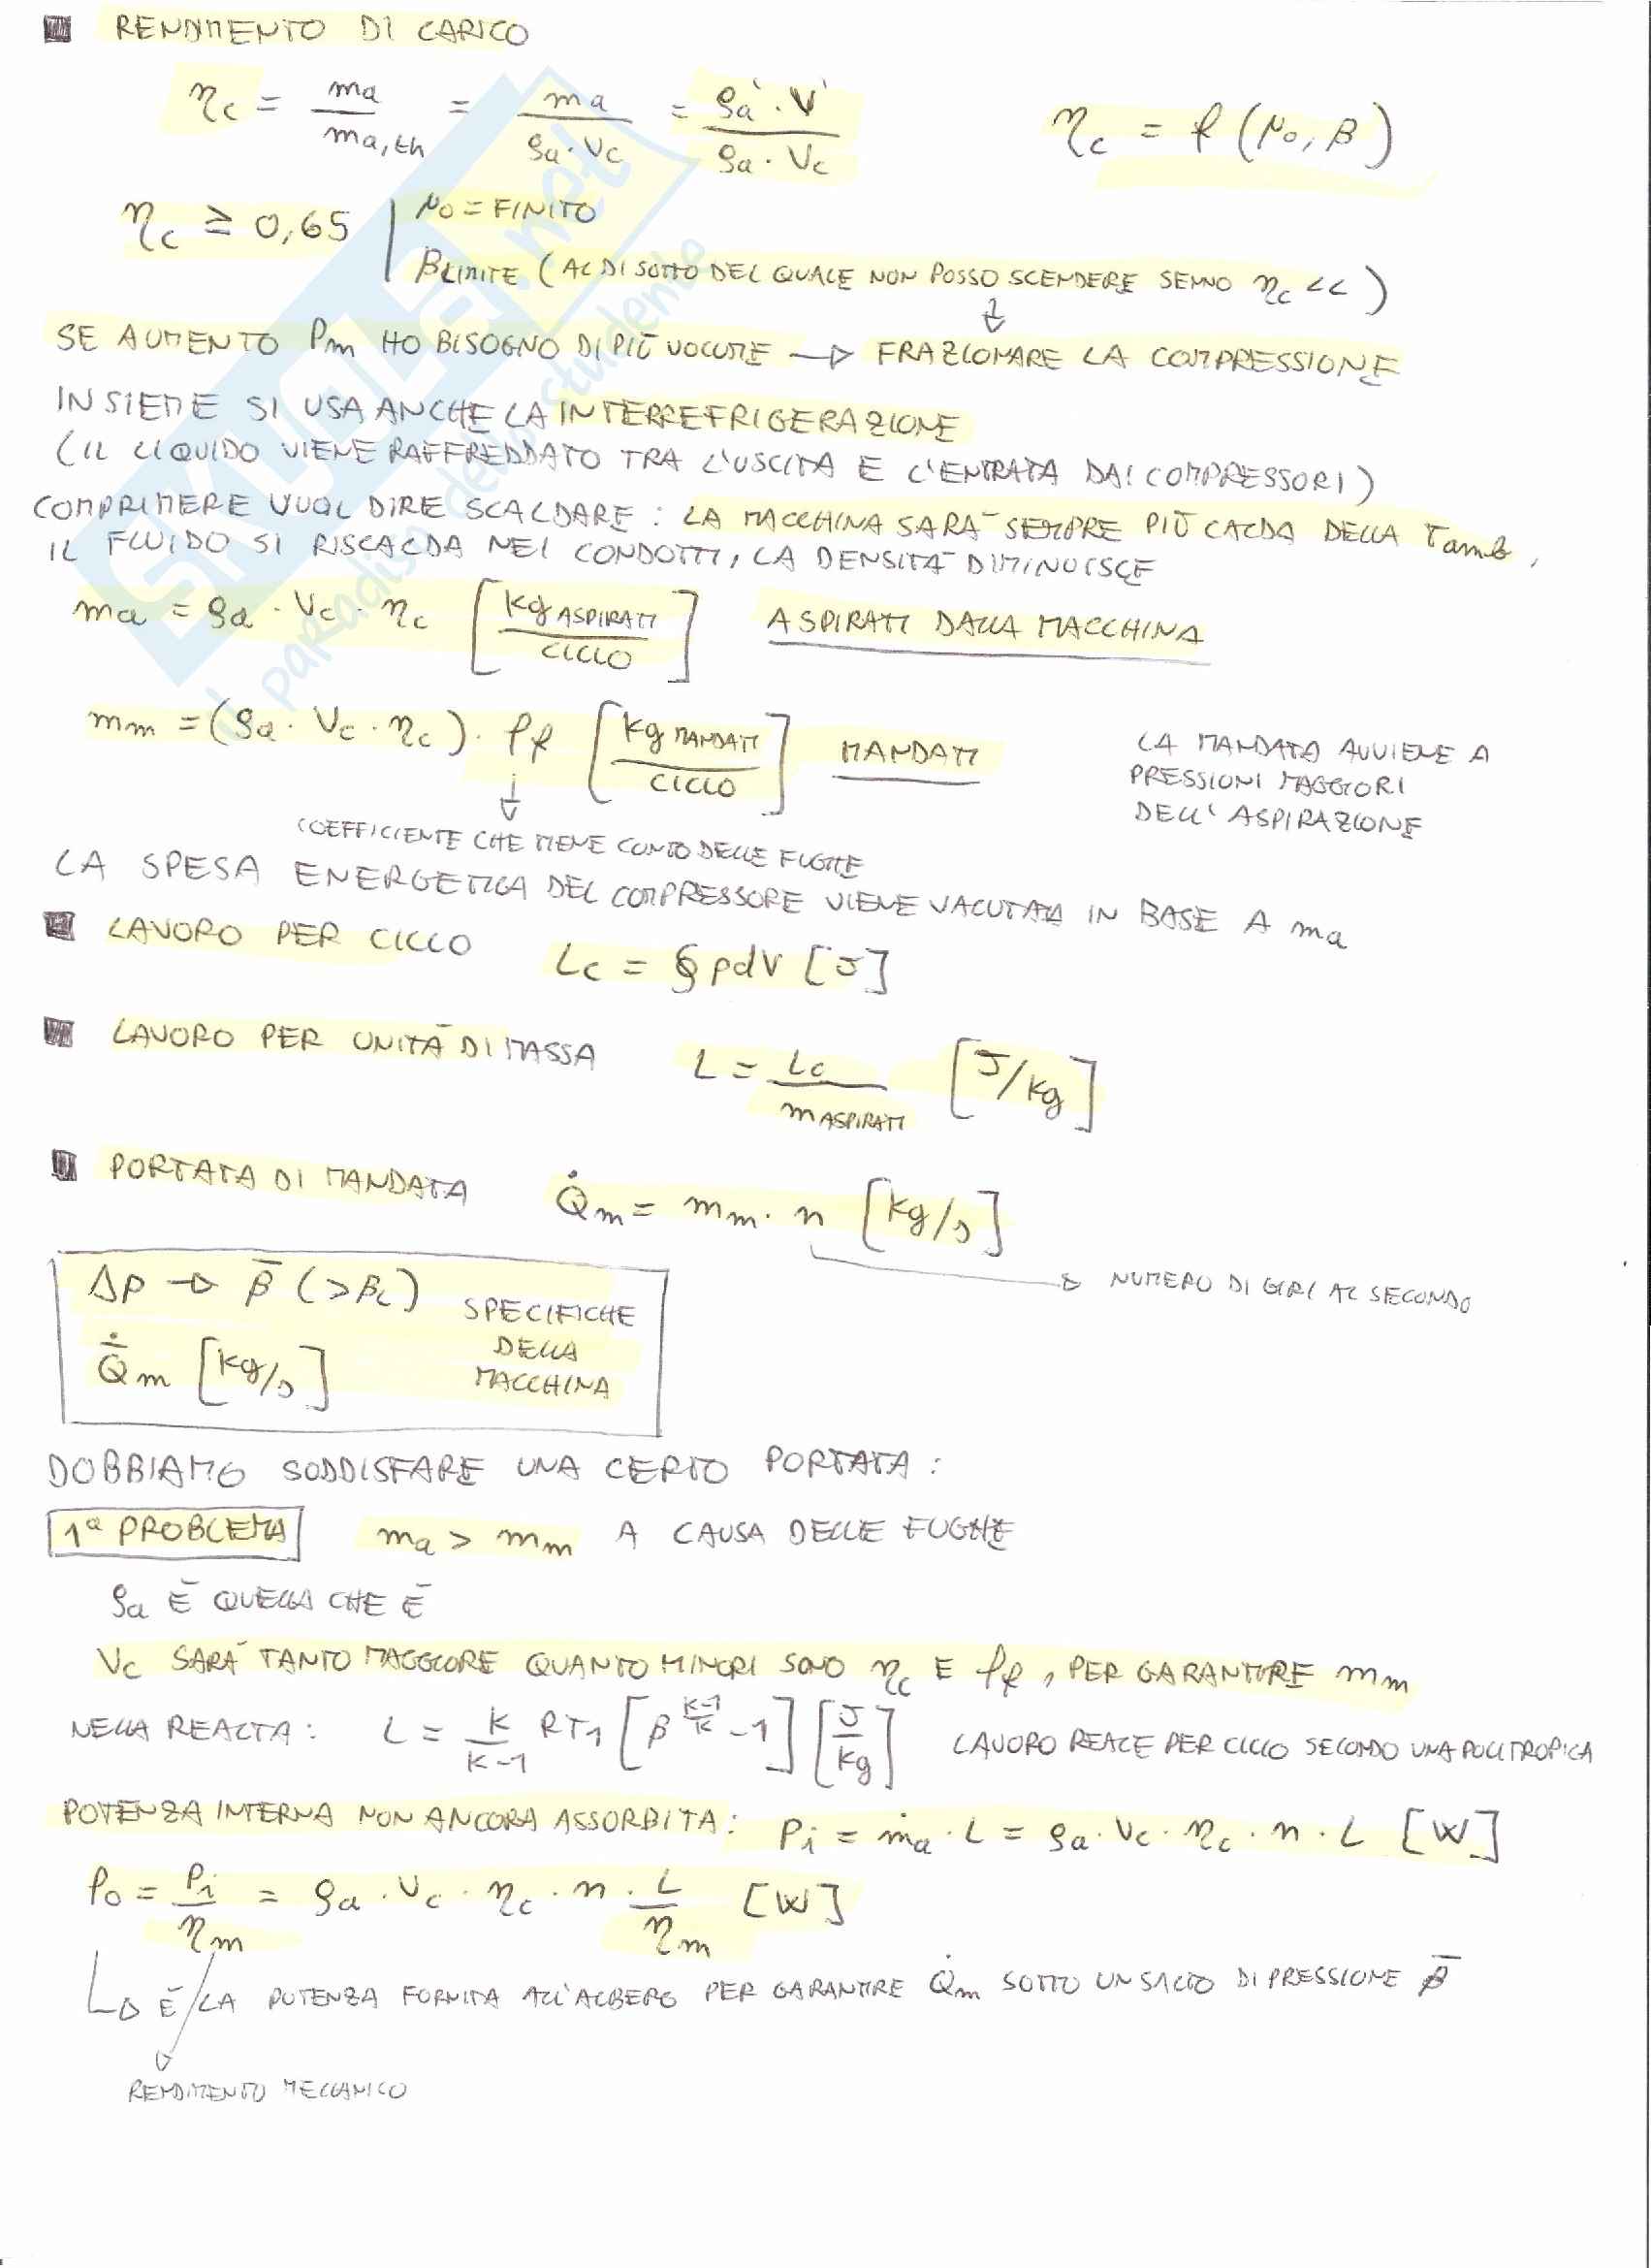 RENDIMENTO DI CARICO
ηc = ma / ma,th = ma / (ρa · Vc) = (ρa' · V') / (ρa · Vc)    ηc = f (μ0, β)
ηc ≥ 0,65 | μ0 = FINITO
βLIMITE (AL DI SOTTO DEL QUALE NON POSSO SCENDERE SENNO ηc <<)
SE AUMENTO Pm HO BISOGNO DI PIÙ VOLUME → FRAZIONARE LA COMPRESSIONE
INSIEME SI USA ANCHE LA INTERREFRIGERAZIONE
(IL LIQUIDO VIENE RAFFREDDATO TRA L'USCITA E L'ENTRATA DAI COMPRESSORI)
COMPRIMERE VUOL DIRE SCALDARE : LA MACCHINA SARÀ SEMPRE PIÙ CALDA DELLA Tamb,
IL FLUIDO SI RISCALDA NEI CONDOTTI, LA DENSITÀ DIMINUISCE
ma = ρa · Vc · ηc [kg ASPIRATI / CICLO]    ASPIRATI DALLA MACCHINA
mm = (ρa · Vc · ηc) · ff [kg MANDATI / CICLO]    MANDATI
LA MANDATA AVVIENE A
PRESSIONI MAGGIORI
DELL' ASPIRAZIONE
COEFFICIENTE CHE TIENE CONTO DELLE FUGHE
LA SPESA ENERGETICA DEL COMPRESSORE VIENE VALUTATA IN BASE A ma
LAVORO PER CICLO    Lc = ∮ pdV [J]
LAVORO PER UNITÀ DI MASSA    L = Lc / m ASPIRATI [J/kg]
PORTATA DI MANDATA    Q̇m = mm · n [kg/s]
→ NUMERO DI GIRI AL SECONDO
Δp → β̄ (>βL) SPECIFICHE
DELLA
Q̇m [kg/s] MACCHINA
DOBBIAMO SODDISFARE UNA CERTO PORTATA :
1ª PROBLEMA    ma > mm A CAUSA DELLE FUGHE
ρa È QUELLA CHE È
Vc SARÀ TANTO MAGGIORE QUANTO MINORI SONO ηc E ff, PER GARANTIRE mm
NELLA REALTÀ : L = K/(K-1) RT1 [β^((K-1)/K) - 1] [J/kg]    LAVORO REALE PER CICLO SECONDO UNA POLITROPICA
POTENZA INTERNA NON ANCORA ASSORBITA : Pi = ṁa · L = ρa · Vc · ηc · n · L [W]
Po = Pi / ηm = ρa · Vc · ηc · n · L / ηm [W]
→ È LA POTENZA FORNITA ALL'ALBERO PER GARANTIRE Q̇m SOTTO UN SALTO DI PRESSIONE β̄
RENDIMENTO MECCANICO
SKUOLA.net
il paradiso dello studente